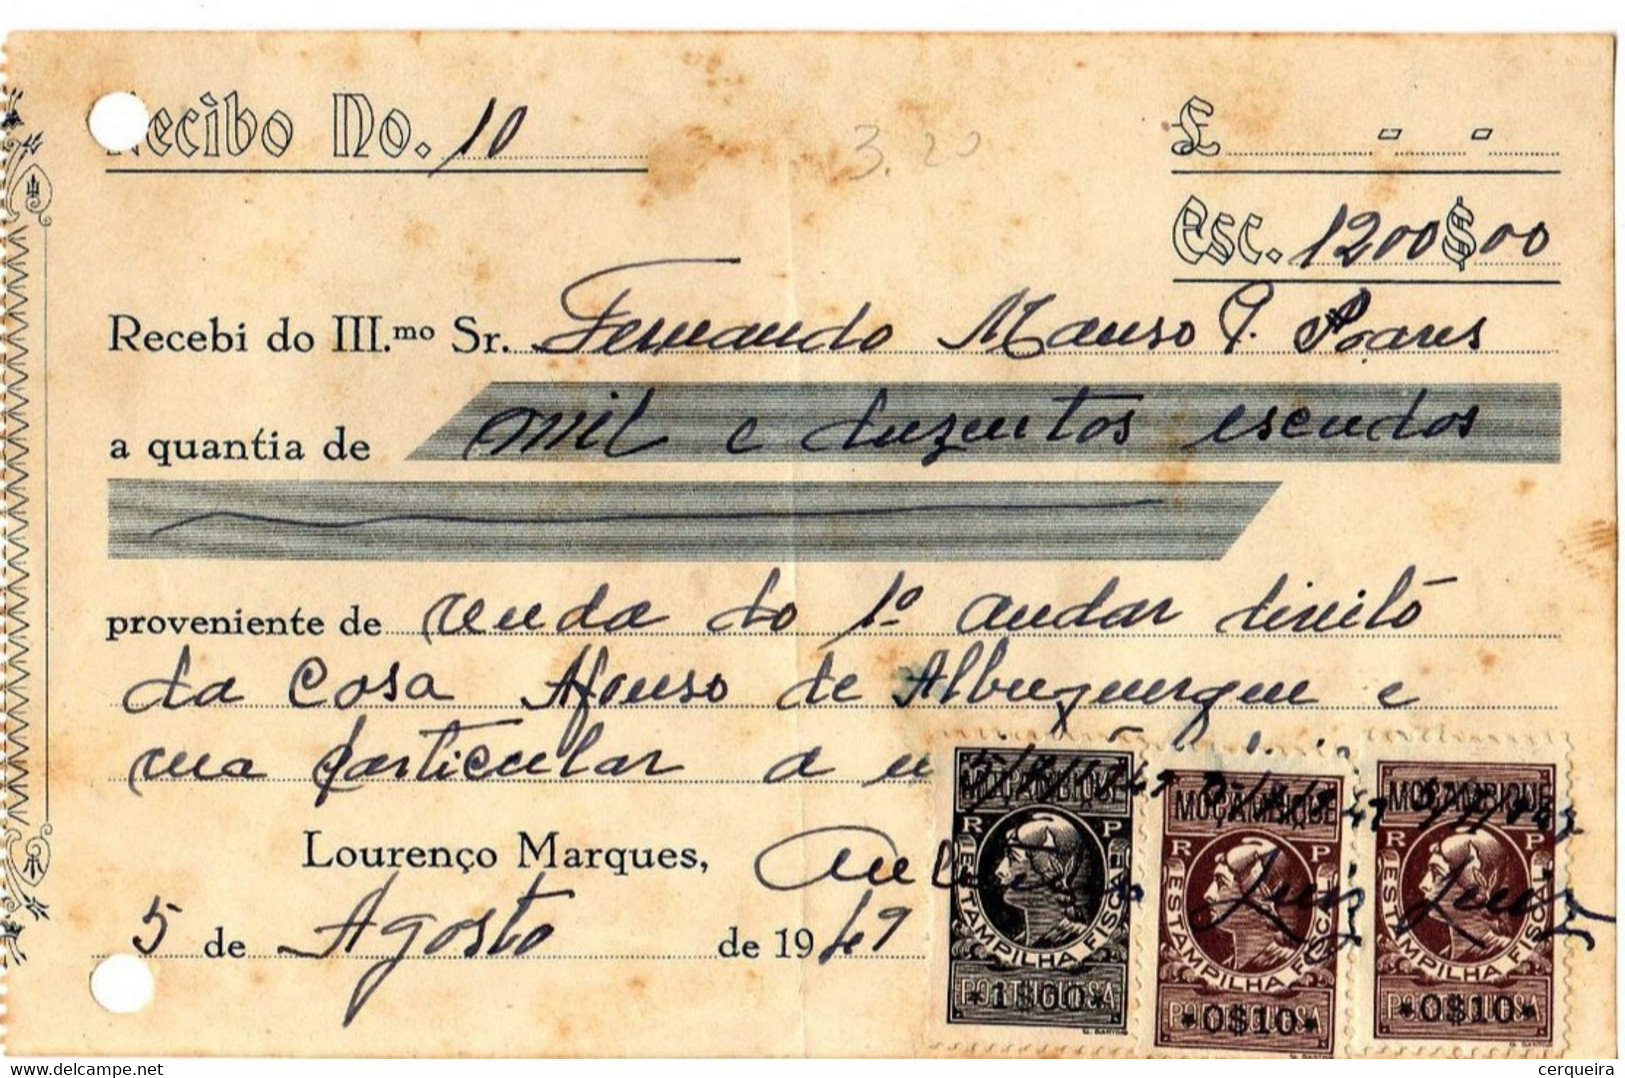 Recibo No. 10
3.20
£ - -
Esc. 1200$00
Recebi do III.mo Sr. Fernando Manso P. Soares
a quantia de mil e duzentos escudos
proveniente de renda do 1º andar direito
da Casa Afonso de Albuquerque e
rua particular a
Lourenço Marques,
5 de Agosto de 1947
MOÇAMBIQUE
R P
ESTAMPILHA FISCAL
PORTUGUESA
*1$00*
MOÇAMBIQUE
R P
ESTAMPILHA FISCAL
PORTUGUESA
*0$10*
MOÇAMBIQUE
R P
ESTAMPILHA FISCAL
PORTUGUESA
*0$10*
Luiz Luiz
delcampe.net
cerqueira